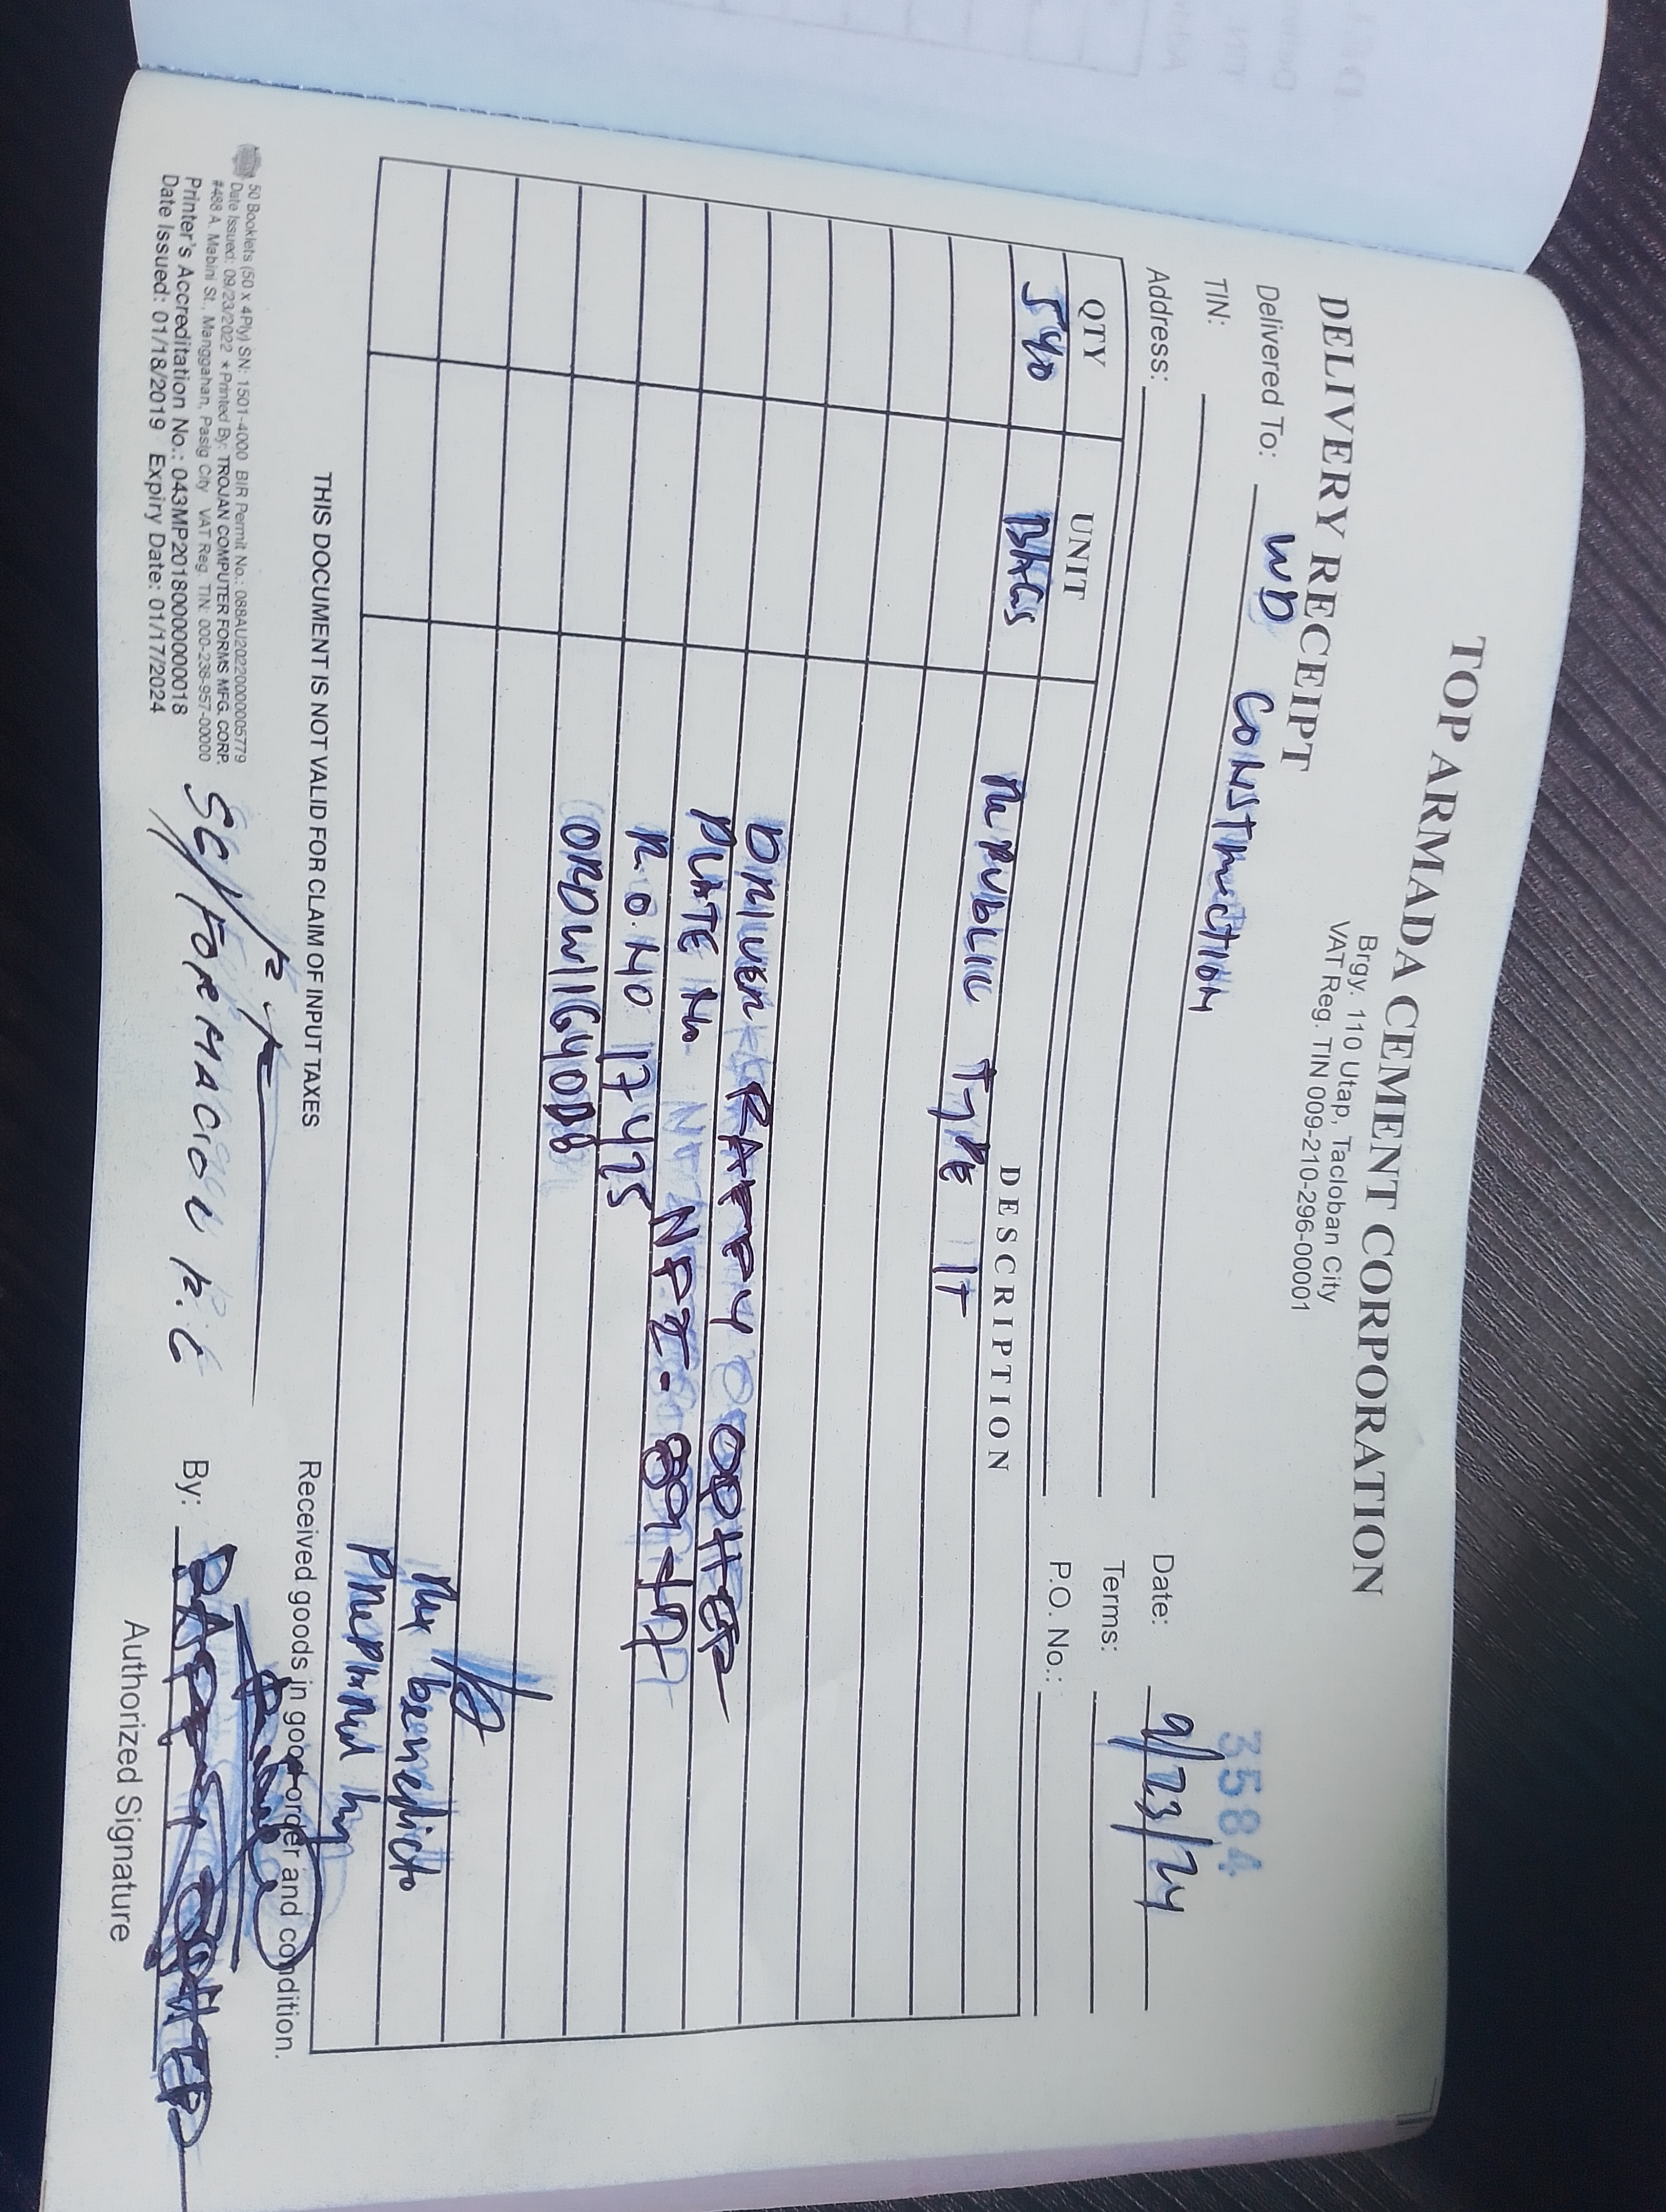 TOP ARMADA CEMENT CORPORATION
Brgy. 110 Utap, Tacloban City
VAT Reg. TIN 009-210-296-00001
DELIVERY RECEIPT
3584
Delivered To: WD CONSTRUCTION
Date: 9/23/24
TIN:
Terms:
Address:
P.O. No.:
QTY UNIT DESCRIPTION
540 BAGS REPUBLIC TYPE 1T
DRIVER RAPPY OPHER
PLATE No NPZ-8977
R.O. NO 17425
Mr benedicto
Prepared by
THIS DOCUMENT IS NOT VALID FOR CLAIM OF INPUT TAXES
Received goods in good order and condition.
50 Booklets (50 x 4Ply) SN: 1501-4000 BIR Permit No.: 088AU20220000005779
Date Issued: 09/23/2022 ★ Printed By: TROJAN COMPUTER FORMS MFG. CORP.
#488 A. Mabini St., Manggahan, Pasig City VAT Reg. TIN: 000-238-957-00000
Printer's Accreditation No.: 043MP20180000000018
Date Issued: 01/18/2019 Expiry Date: 01/17/2024
SG/FORMACION R.C
By:
Authorized Signature